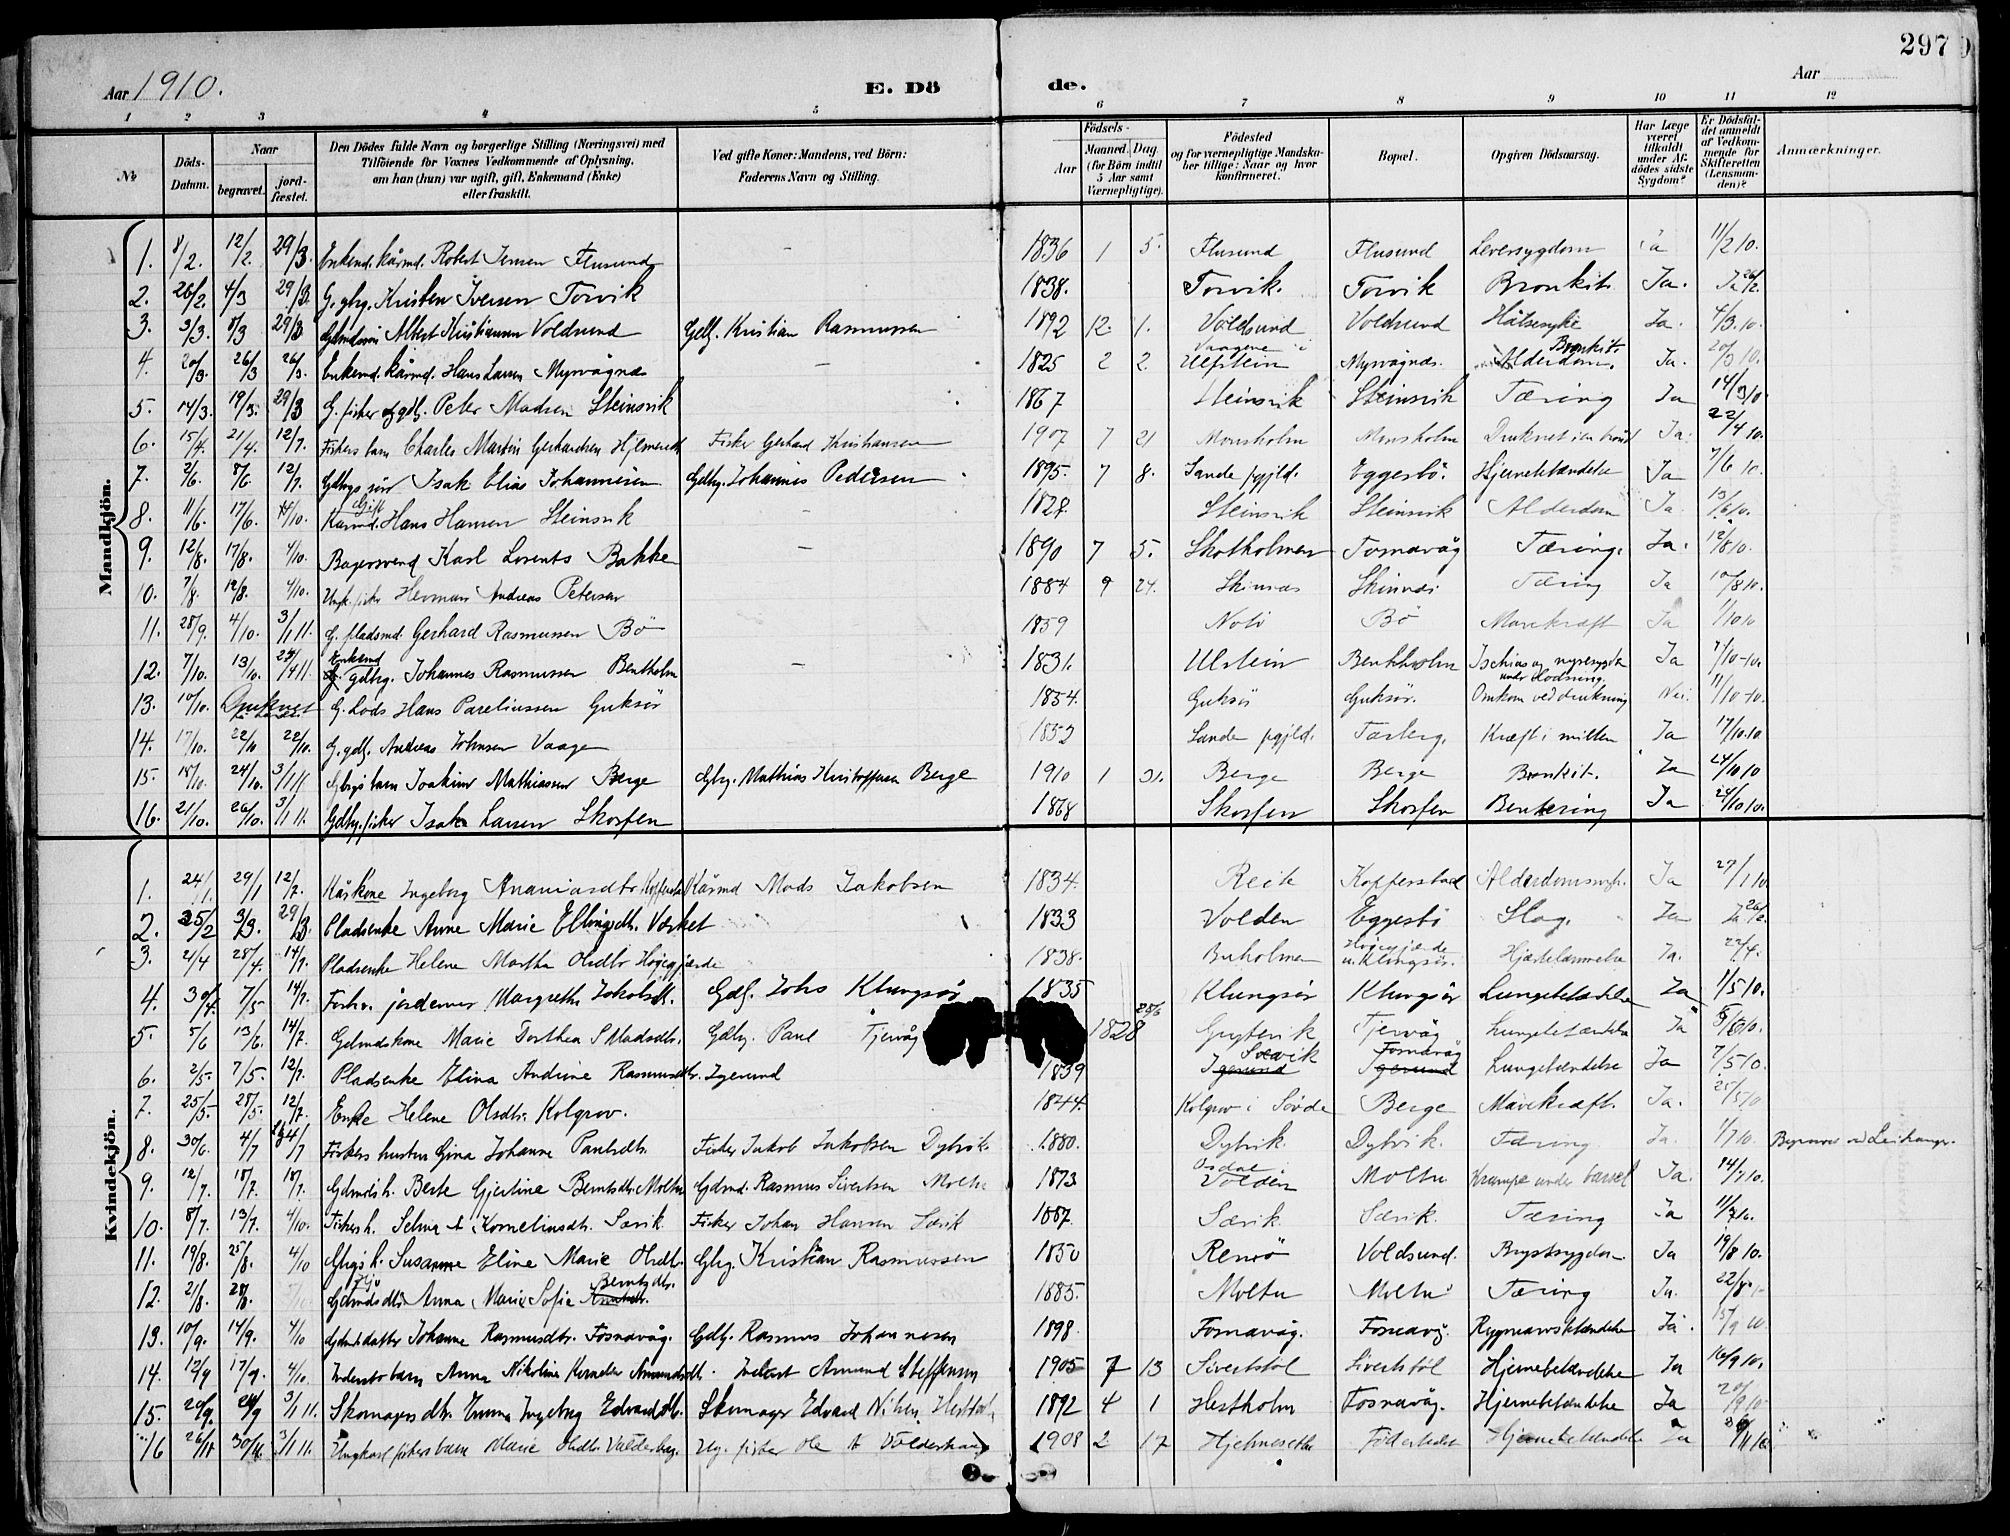 297
Aar 1910.
E. Dö
de.
Aar
1 2 3 4 5 6 7 8 9 10 11 12
№
Döds-Datum.
Naar
begravet.
jord-fæstet.
Den Dödes fulde Navn og borgerlige Stilling (Næringsvei) med Tilföiende for Voxnes Vedkommende af Oplysning, om han (hun) var ugift, gift, Enkemand (Enke) eller fraskilt.
Ved gifte Koner: Mandens, ved Börn: Faderens Navn og Stilling.
Födsels-
Aar
Maaned. Dag.
(for Börn indtil 5 Aar samt Værnepligtige).
Födested og for værnepligtige Mandskaber tillige: Naar og hvor konfirmeret.
Bopæl.
Opgiven Dödsaarsag.
Har Læge været tilkaldt under Afdödes sidste Sygdom?
Er Dödsfaldet anmeldt af Vedkommende for Skifteretten (Lensmanden)?
Anmærkninger.
Mandkjön.
1. 8/2. 12/2. 29/3. Enkemd. kårmd. Robert Jensen Flusund - 1836 1 5. Flusund Flusund Leversygdom Ja 11/2 10.
2. 26/2. 4/3 29/3. G. gbrg. Kristen Iversen Torvik 1838. Torvik. Torvik Bronkit. Ja. Ja 26/2.
3. 3/3. 8/3 29/3 Albert Kristiansen Voldsund Gdbr. Kristian Rasmussen 1892 12. 1. Voldsund Voldsund Halsesyke Ja. 4/3. 10.
4. 20/3. 26/3 26/3. Enkemd. kårmd. Hans Larsen Myrvågnæs - 1825 2 2. Vaagene i Ulfstein Myrvågnæs. Alderdom. Bronkit. Ja. 20/3 10.
5. 14/3. 19/3. 29/3 G. fisker og gdbr. Peter Madsen Steinsvik 1867 Steinsvik Steinsvik Tæring Ja 14/3 10.
6. 15/4. 21/4. 12/7. Fiskers barn Charles Martin Gerhardsen Hjelmeseth Fisker Gerhard Kristiansen 1907 7 21 Monsholm Monsholm Druknet i en brønd Ja. 22/4 10.
7. 2/6. 8/6. 12/7. Isak Elias Johannesen Gdbrg. Johannes Pedersen 1895. 7 8. Sande pgjld. Eggesbö. Hjernebetændelse Ja 7/6 10.
8. 11/6. 17/6. 4/10. Gift Kårmd. Hans Hansen Steinsvik - Steinsvik Steinsvik Alderdom Ja 13/6 10.
9. 12/8. 17/8. 4/10. Bagersvend Karl Lorents Bakke - 1890 7 5. Skotholmen Fosnavåg Tæring. Ja. 12/8 10.
10. 7/8. 12/8. 4/10. Ungk. fisker Herman Andreas Petersen 1884 9 24. Tæring Ja 10/8 10.
11. 28/9. 4/10. 3/1 11. G. pladsmd. Gerhard Rasmussen Bö 1859 Bö Mavekræft Ja 1/10 10
12. 7/10. 13/10. Enkemd gdbrg. Johannes Rasmussen Bentholm - 1831. Ulstein Benkholm Ischias og nyresygdom Ja 7/10-10.
13. 10/10. Druknet G. Lods Hans Pareliussen Guksör 1854. Guksör Guksör. under Lodsning. Omkom ved drukning Nei. 11/10 10.
14. 17/10. 22/10 22/10. G. gdbr. Andreas Johnsen Vaage 1852 Sande pgjld. Kræft i milten Ja 17/10.10
15. 18/10. 24/10. 3/1 11 Gbrgs barn Joakim Mathiassen Berge Gbrg. Mathias Kristoffersen Berge 1910 1 31. Berge Berge Bronkit. Ja 24/10 10
16. 21/10. 26/10. 3/1 11. Gdbrg. fisker Isak Larsen Skorpen 1868 Skorpen Skorpen Bentæring Ja 24/10 10.
Kvindekjön.
1. 24/1. 29/1 12/7. Kårkone Ingeborg Ananiasdtr. Kopperstad Kårmd Mads Jakobsen 1834. Reite Kopperstad Ja 27/1 10.
2. 25/2 3/3. 29/3. Pladsenke Anne Marie Ellingsdtr. Værket 1833 Volden Eggesbö Slag. Ja Ja 26/2.
3. 21/4 28/4. 14/7. Pladsenke Helene Martha Olsdtr 1838. Buholmen u. Klungsör. Hjertelammelse Ja. 22/4.
4. 30/4. 7/5 14/7. Forhv. jordemor Margrethe Jakobsdt. Gdbr. Johs Klungsör 1835 Klungsör Klungsör Lungebetændelse Ja 1/5 10.
5. 5/6 13/6. 14/7. Gdmdskone Marie Dorthea S Madsdtr. Gdbrg. Paul Tjervåg 1828 28/6 Tjervåg Lungebetændelse Ja 10.
6. 2/5. 7/5. 12/7. Pladsenke Elina Andrine Rasmusdtr. Igesund 1839 Igesund Fosnavåg Igesund Lungebetændelse Ja 7/5 10.
7. 25/5. 28/5. 12/7. Enke Helene Olsdtr. Kolgrov. 1844. Kolgrov i Sövde Berge Mavekræft. Ja. 25/5 10
8. 30/6. 4/7 14/7 Fiskers hustru Gina Johanne Paulsdtr. Fisker Jakob Jakobsen Dybvik 1880. Dybvik. Dybvik. Tæring Ja. 1/7 10. Begraves ved Leikanger.
9. 12/7. 18/7. 18/7. Gdmds h. Berte Gjertine Berntsdtr. Moltu Gdmd. Rasmus Sivertsen Moltu 1873 Osdal Volden Moltu Krampe under barsel Ja. 14/7 10.
10. 8/7. 13/7. 4/10. Fiskers h. Selma A Korneliusdtr. Sævik Fisker Johan Hansen Sævik 1887. Sævik. Sævik. Tæring Ja
11. 19/8. 25/8. 4/10 Gbrgs h. Susanne Eline Marie Olsdtr. Gbrg. Kristian Rasmussen 1850 Remö Voldsund. Brystsygdom Ja 19/8 10.
12. 21/8. 28/8. Gdmdsdtr. Anna Marie Sofie Berntsdtr. 1885. Moltu Moltu Tæring Ja. 22/8
13. 10/9. 14/9. 4/10 Johanne Rasmusdtr. Fosnavåg. Gdbr. Rasmus Johannesen 1898. Fosnavåg. Fosnavåg. Rygmarvsbetændelse Ja. 15/9 10.
14. 12/9 17/9. 4/10. Inderstbarn Anna Nikoline Kornelie Amundsdt. Inderst Amund Steffensen 1905 7 13 Sivertstöl Sivertstöl Hjernebetændelse Ja 16/9 10.
15. 20/9. 24/9 3/1 11. Skomagers dtr. Emma Ingeborg Edvardsdtr. Skomager Edvard Nilsen Hestholm 1892 4 1 Hestholm Fosnavåg. Hjernebetændelse Ja 20/9 10
16 26/11 30/11. 3/1 11. Ungkarl fiskers barn Marie Olsdtr. Valderhaug. Ug. fisker Ole A Valderhaug 1908 2 17 Hjelmeseth Födestedet Hjernebetændelse Ja